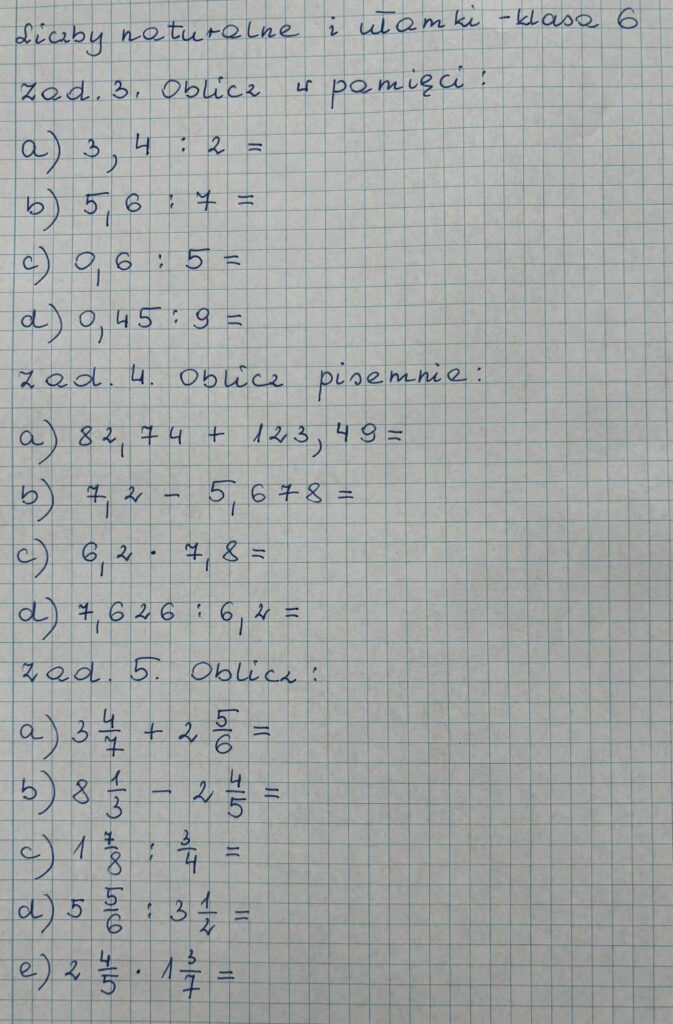 Liczby naturalne i ułamki - klasa 6
Zad. 3. Oblicz w pamięci:
a) 3,4 : 2 =
b) 5,6 : 7 =
c) 0,6 : 5 =
d) 0,45 : 9 =
Zad. 4. Oblicz pisemnie:
a) 82,74 + 123,49 =
b) 7,2 - 5,678 =
c) 6,2 · 7,8 =
d) 7,626 : 6,2 =
Zad. 5. Oblicz:
a) 3 4/7 + 2 5/6 =
b) 8 1/3 - 2 4/5 =
c) 1 7/8 : 3/4 =
d) 5 5/6 : 3 1/2 =
e) 2 4/5 · 1 3/7 =